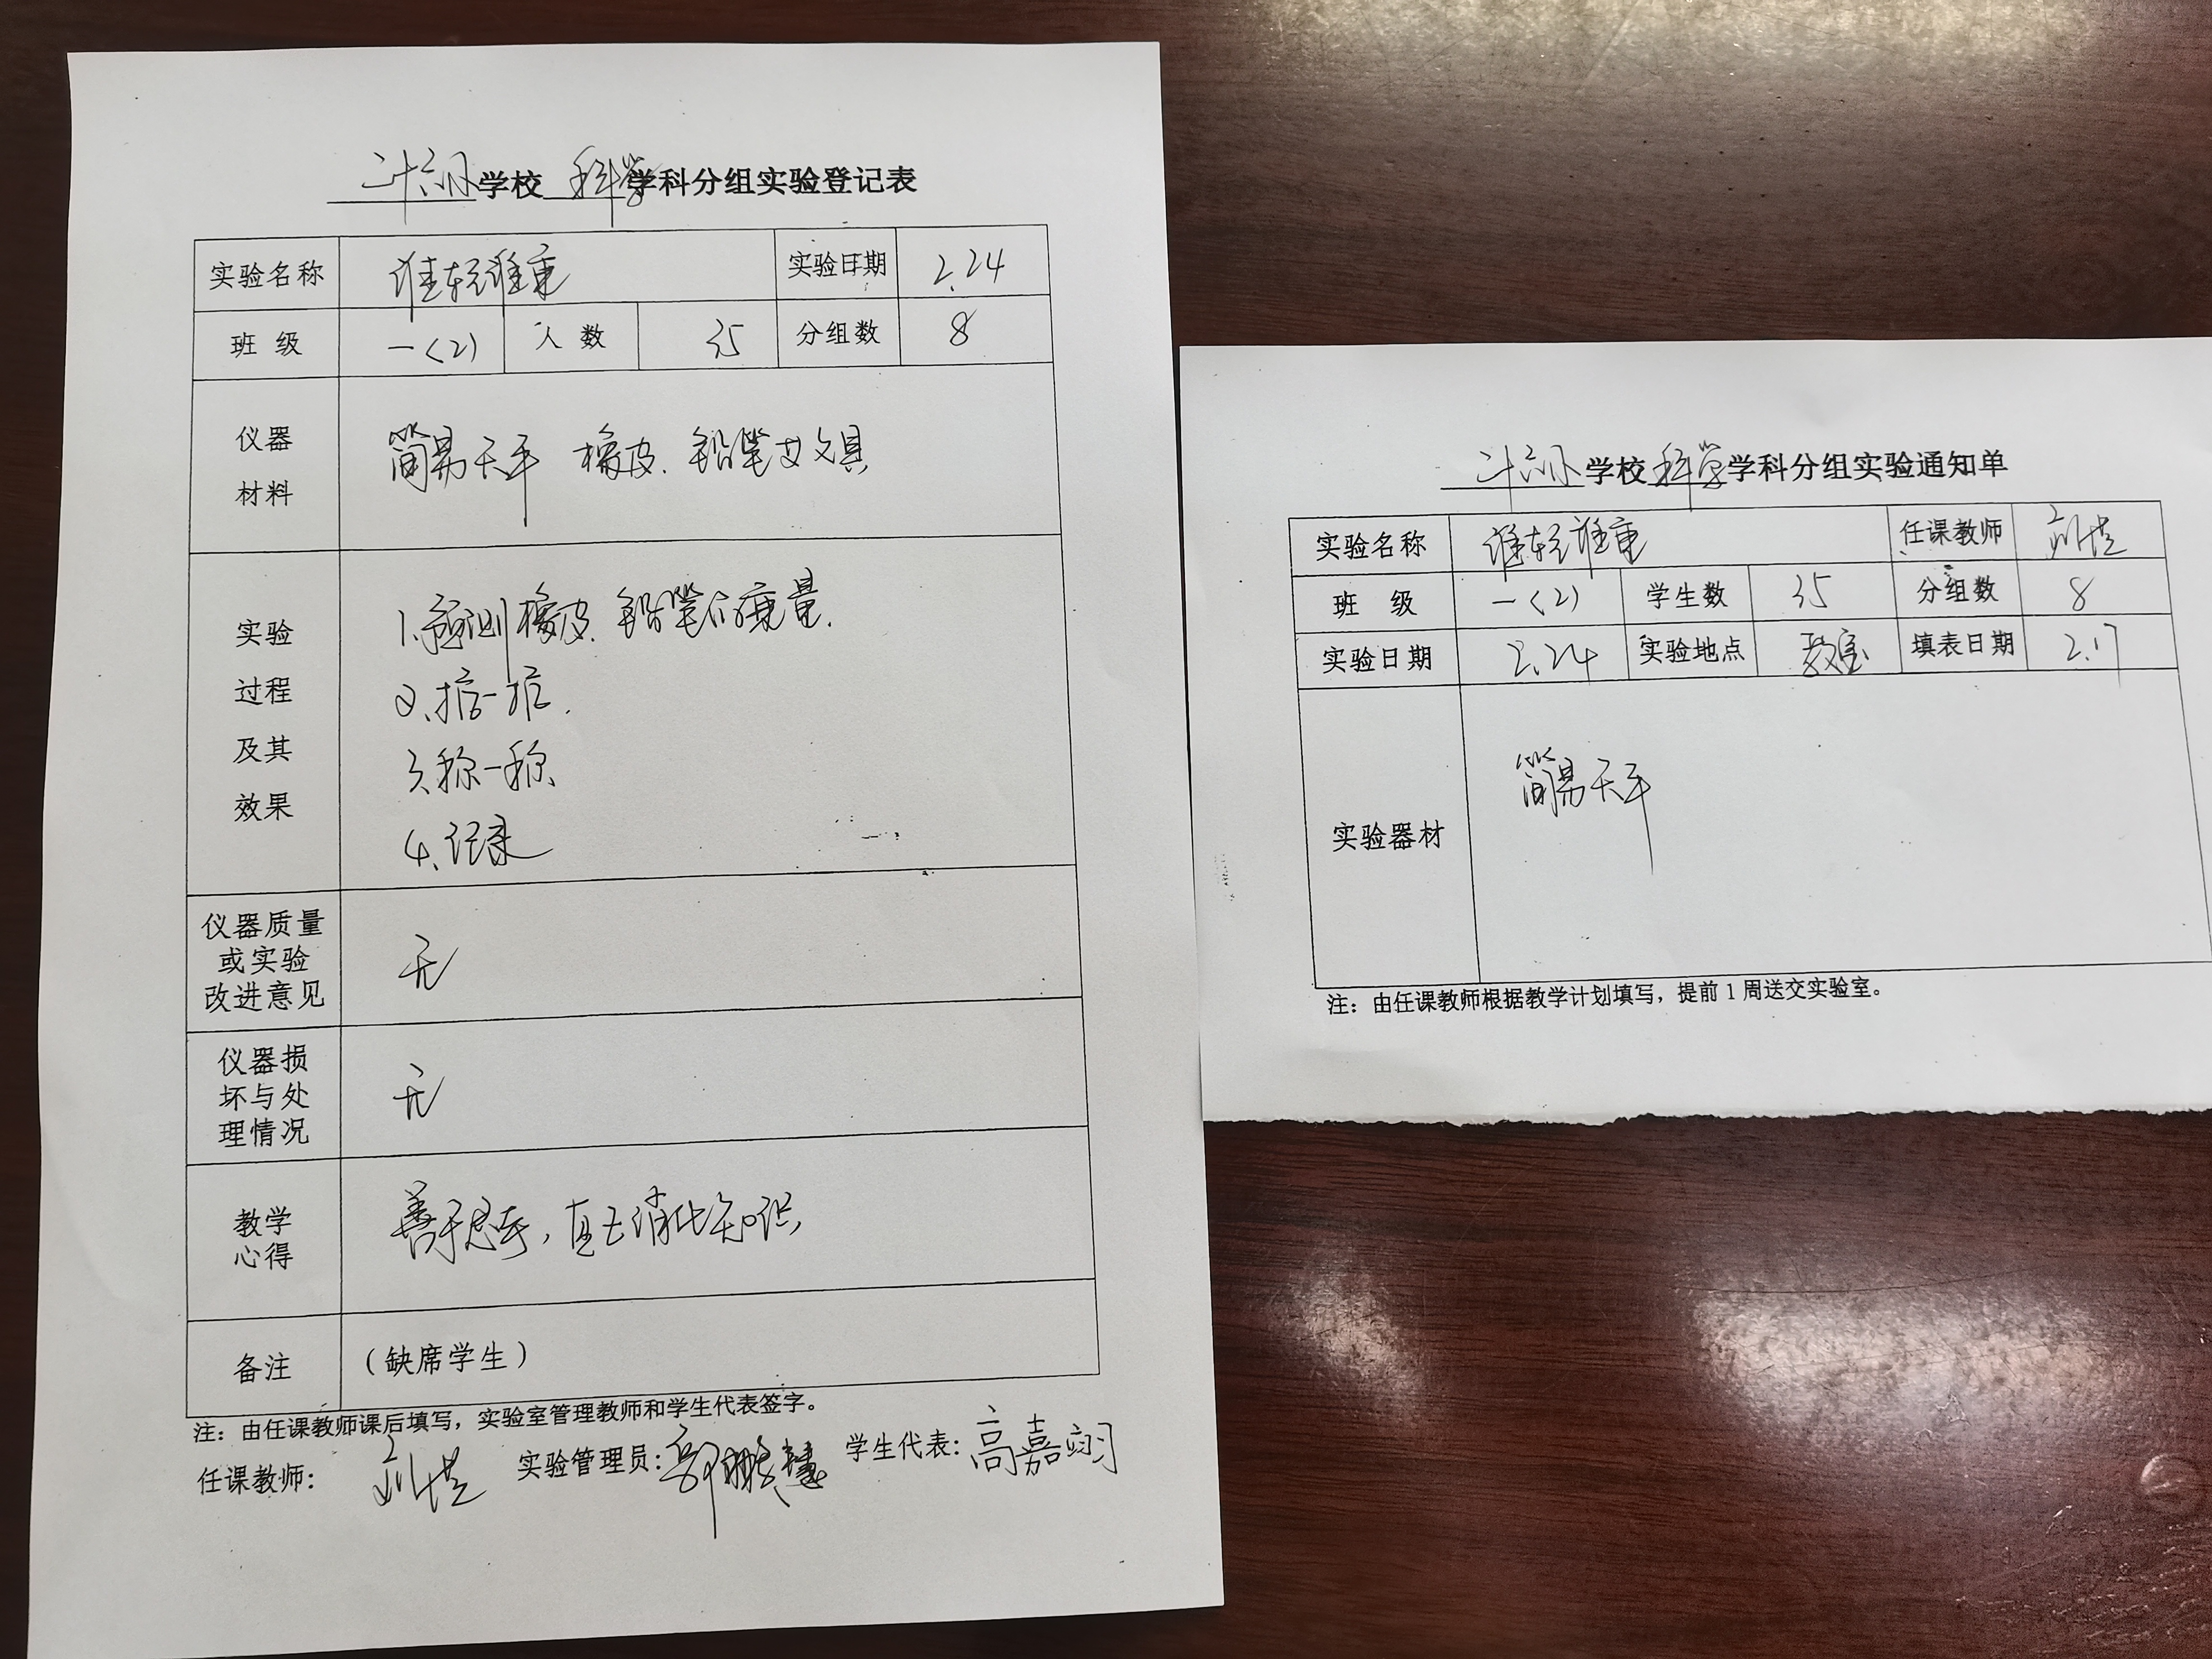 二十六小学校 科学学科分组实验登记表
实验名称 谁轻谁重 实验日期 2.24
班 级 一(2) 人 数 35 分组数 8
仪器
材料
简易天平 橡皮、铅笔等文具
实验
过程
及其
效果
1.预测橡皮、铅笔的重量.
2.掂一掂.
3.称一称.
4.记录
仪器质量
或实验
改进意见
无
仪器损
坏与处
理情况
无
教学
心得
善于思考,消化知识
备注 (缺席学生)
注:由任课教师课后填写,实验室管理教师和学生代表签字。
任课教师: 刘 实验管理员:郭 慧 学生代表:高嘉翊
二十六小学校科学学科分组实验通知单
实验名称 谁轻谁重 任课教师 刘
班 级 一(2) 学生数 35 分组数 8
实验日期 2.24 实验地点 教室 填表日期 2.17
实验器材 简易天平
注:由任课教师根据教学计划填写,提前1周送交实验室。